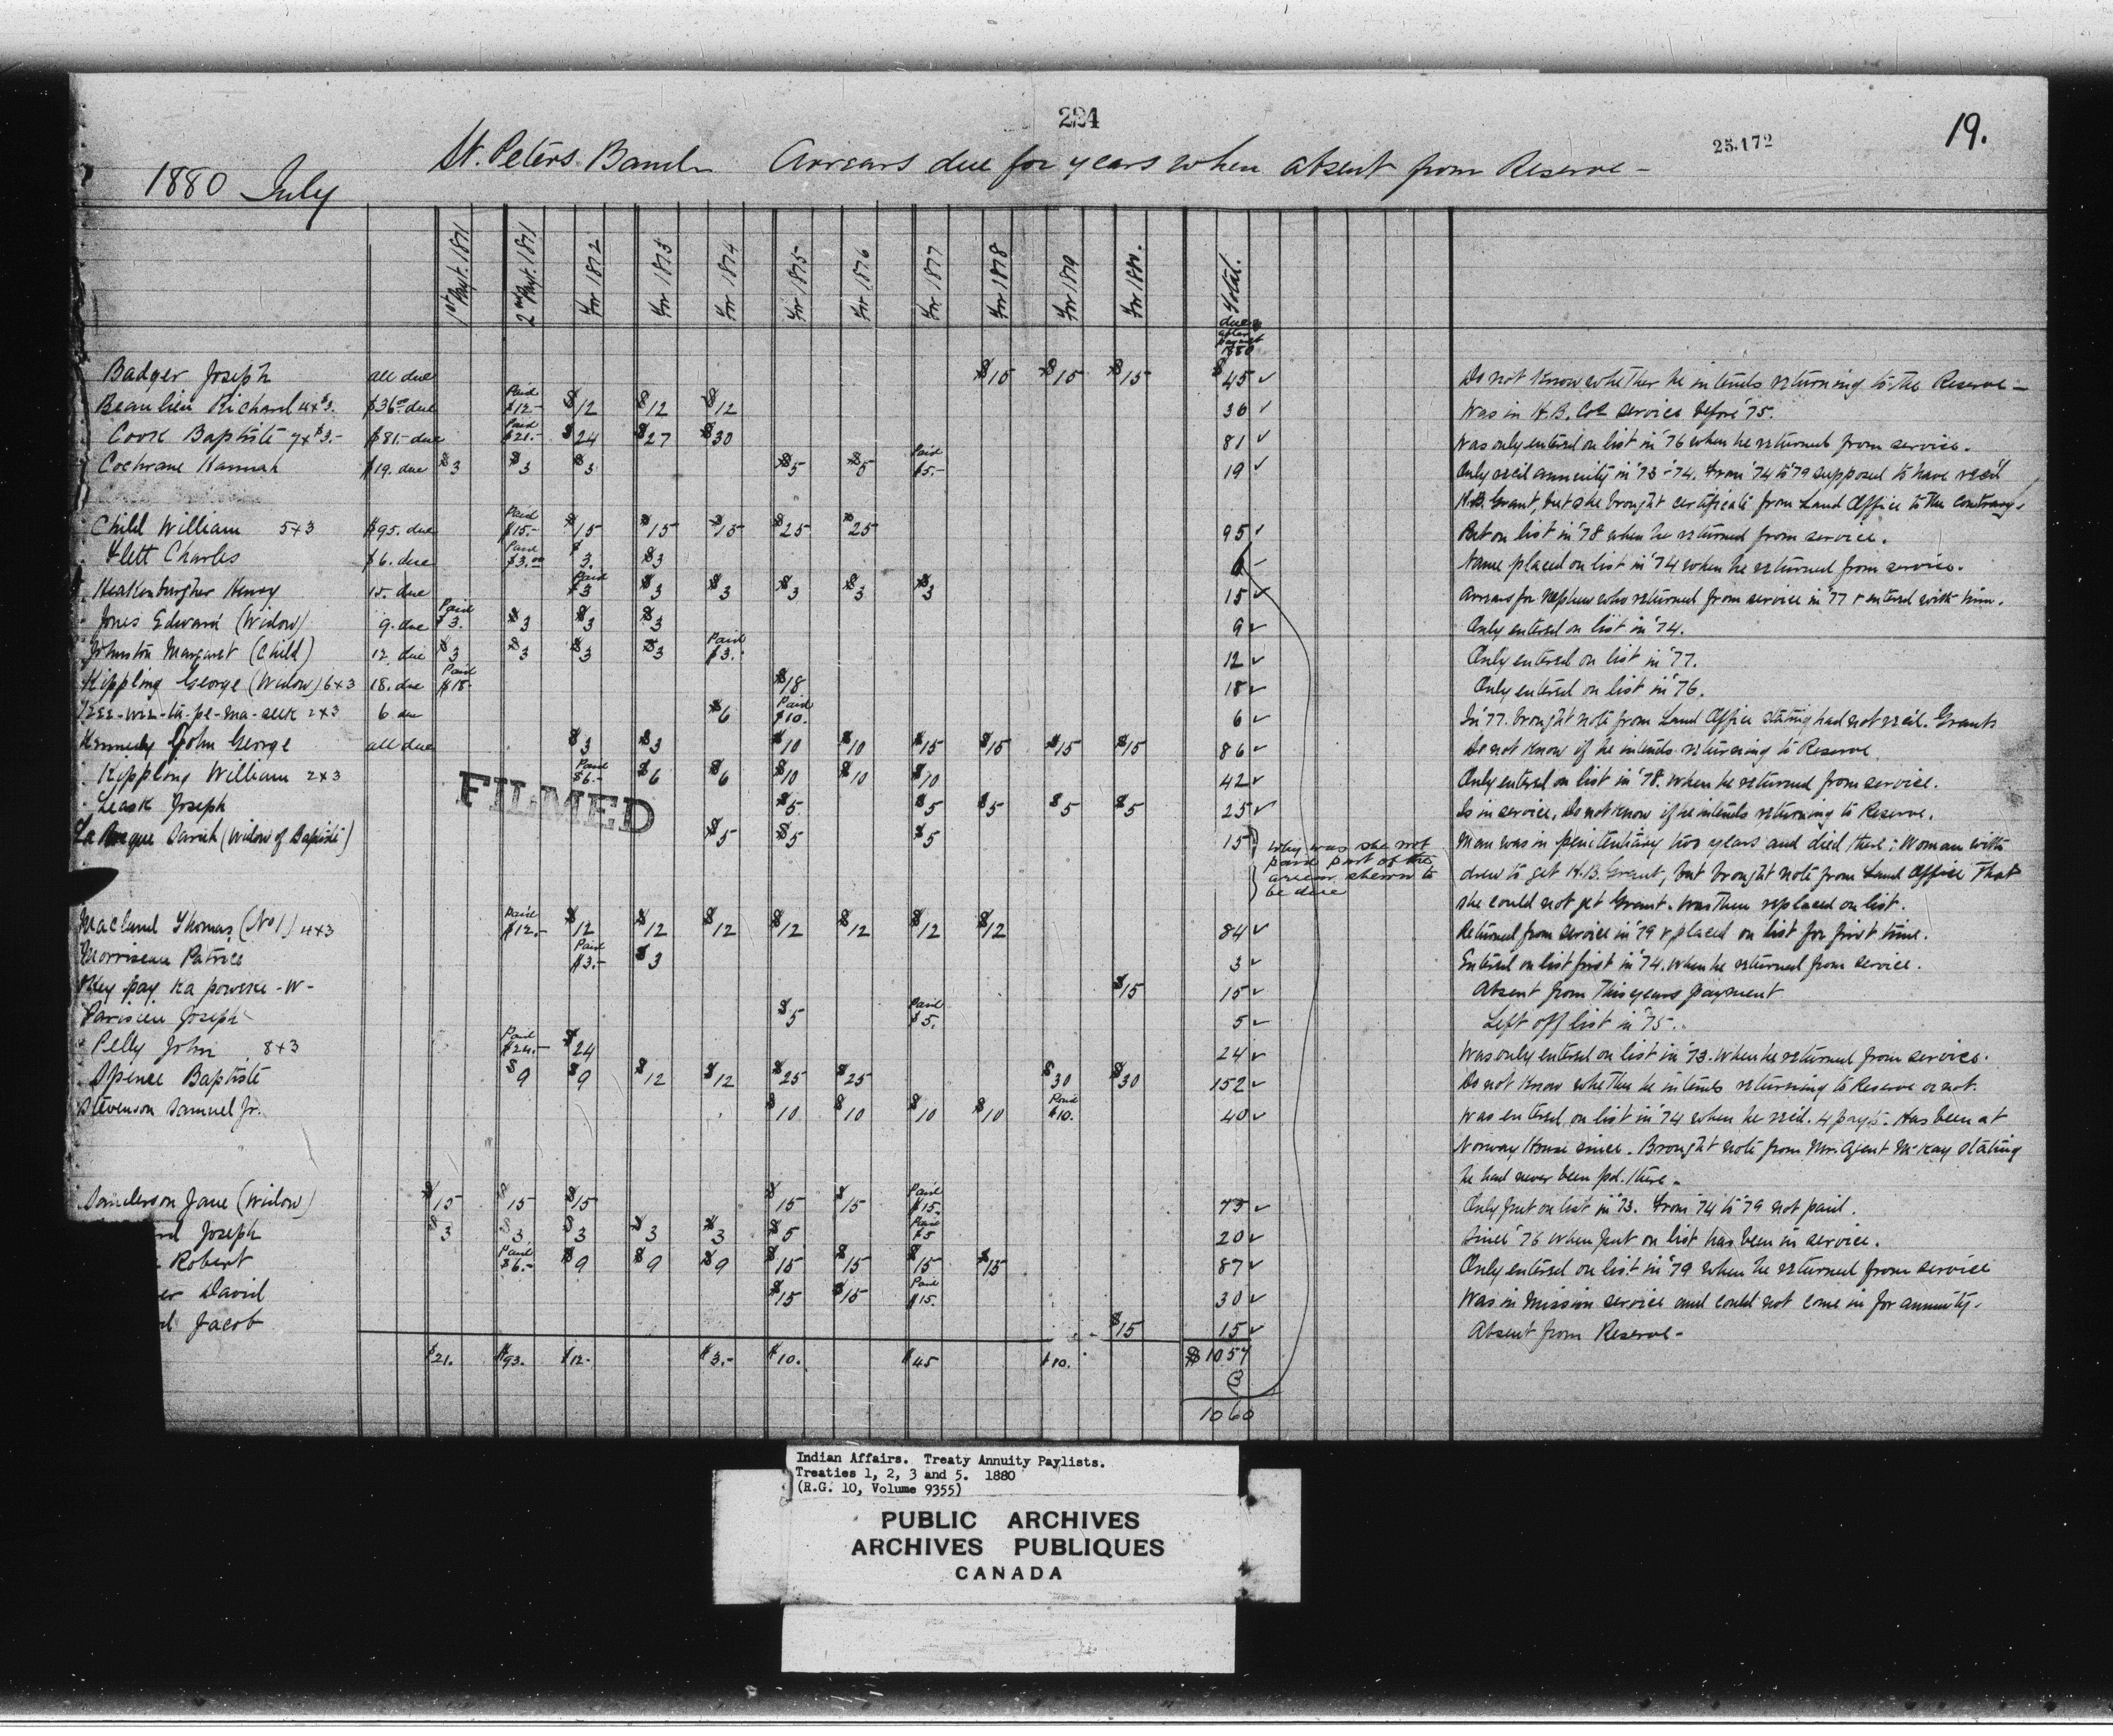 224
25.172
19.
1880 July St. Peters Band Arrears due for years when absent from Reserve -
1st Payt. 1871 2nd Payt. 1871 For 1872 For 1873 For 1874 For 1875 For 1876 For 1877 For 1878 For 1879 For 1880. Total.
due after payment 1880
Badger Joseph all due $15 $15 $15 $45 ✓ Do not know whether he intends returning to the Reserve -
Beaulieu Richard 4x$3. $36.00 due Paid $12- $12 $12 $12 36 ✓ Was in H.B. Co's service before '75.
Cook Baptiste 7x$3.- $81.- due Paid $21.- $24 $27 $30 81 ✓ Was only entered on list in '76 when he returned from service.
Cochrane Hannah $19. due $3 $3 $3 $5 $5 Paid $5.- 19 ✓ Only rec'd annuity in '73 - '74. From '74 to '79 supposed to have rec'd
H.B. Grant, but she brought certificate from Land Office to the contrary.
Child William 5x3 $95. due Paid $15.- $15 $15 $15 $25 $25 95 ✓ Put on list in '78 when he returned from service.
Flett Charles $6. due Paid $3.00 $3. $3 6 Name placed on list in '74 when he returned from service.
Henry 15. due Paid $3 $3 $3 $3 $3 $3 15 ✓ Arrears for nephew who returned from service in '77 & entered with him.
Jones Edward (Widow) 9. due Paid $3. $3 $3 $3 9 ✓ Only entered on list in '74.
Johnston Margaret (Child) 12 due $3 $3 $3 $3 Paid $3. 12 ✓ Only entered on list in '77.
Kippling George (Widow) 6x3 18. due Paid $18- $18 18 ✓ Only entered on list in '76.
2x3 6 due $6 Paid $10. 6 ✓ In '77 brought note from Land Office stating had not rec'd. Grants
Kennedy John George all due $3 $3 $10 $10 $15 $15 $15 $15 86 ✓ Do not know if he intends returning to Reserve
Kippling William 2x3 Paid $6.- $6 $6 $10 $10 $10 42 ✓ Only entered on list in '78. when he returned from service.
FILMED
Leask Joseph $5. $5 $5 $5 $5 25 ✓ Is in service, do not know if he intends returning to Reserve.
Sarah (Widow of Baptiste) $5 $5 $5 15 Man was in penitentiary two years and died there; Woman with
why was she not paid part of the arrear shewn to be due
drew to get H.B. Grant, but brought note from Land Office that
she could not get Grant. Was then replaced on list.
Thomas (No 1) 4x3 Paid $12.- $12 $12 $12 $12 $12 $12 $12 84 ✓ Returned from service in '79 & placed on list for first time.
Morriseau Patrice Paid $3.- $3 3 ✓ Entered on list first in '74. when he returned from service.
- W - $15 15 ✓ Absent from this years payment
Parisien Joseph $5 Paid $5. 5 ✓ Left off list in '75.
Pelly John 8x3 Paid $24.- $24 24 ✓ Was only entered on list in '73. when he returned from service.
Spence Baptiste $9 $9 $12 $12 $25 $25 $30 $30 152 ✓ Do not know whether he intends returning to Reserve or not.
Stevenson Samuel Jr. $10 $10 $10 $10 Paid $10. 40 ✓ Was entered on list in '74 when he rec'd. 4 pay'ts. Has been at
Norway House since. Brought note from Agent McKay stating
he had never been pd. there -
Sanderson Jane (Widow) $15 $15 $15 $15 $15 Paid $15. 75 ✓ Only put on list in '73. From '74 to '79 not paid.
Joseph $3 $3 $3 $3 $3 $5 Paid $5 20 ✓ Since '76 when put on list has been in service.
Robert Paid $6.- $9 $9 $9 $15 $15 $15 $15 87 ✓ Only entered on list in '79 when he returned from service
David $15 $15 Paid $15. 30 ✓ Was in Mission service and could not come in for annuity.
Jacob $15 15 ✓ Absent from Reserve -
$21. $93. $12. $3.- $10. $45 $10. $1057
3
1060
Indian Affairs. Treaty Annuity Paylists.
Treaties 1, 2, 3 and 5. 1880
(R.G. 10, Volume 9355)
PUBLIC ARCHIVES
ARCHIVES PUBLIQUES
CANADA